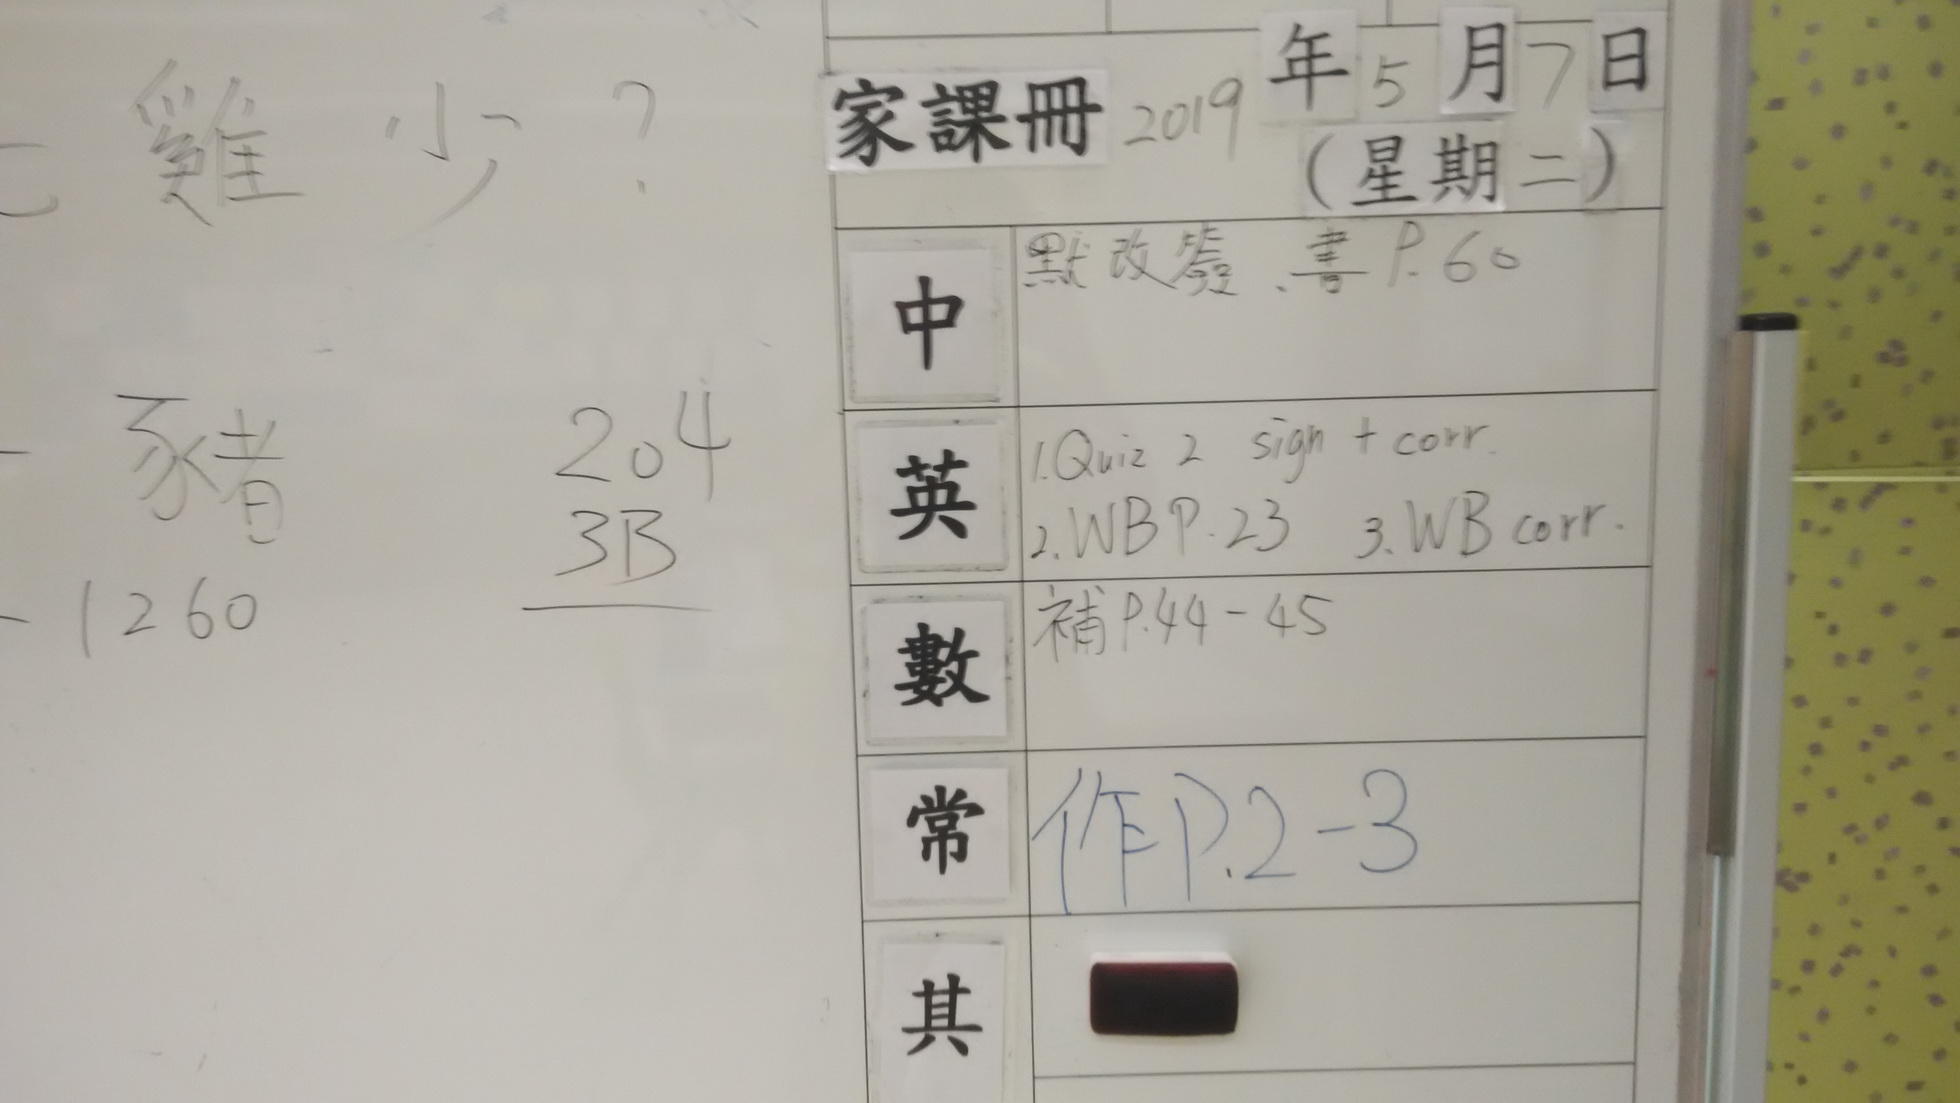 雞 少 ?
豬
204
3B
1260
家課冊 2019 年 5 月 7 日
(星期二)
中
默改簽、書 P.60
英
1.Quiz 2 sign + corr.
2.WB P.23 3.WB corr.
數
補 P.44-45
常
作 P.2-3
其